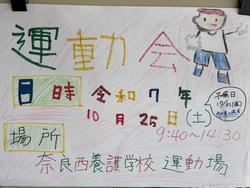 運動会
日時 令和7年
10月25日(土)
9:40~14:30
場所
奈良西養護学校 運動場
予備日